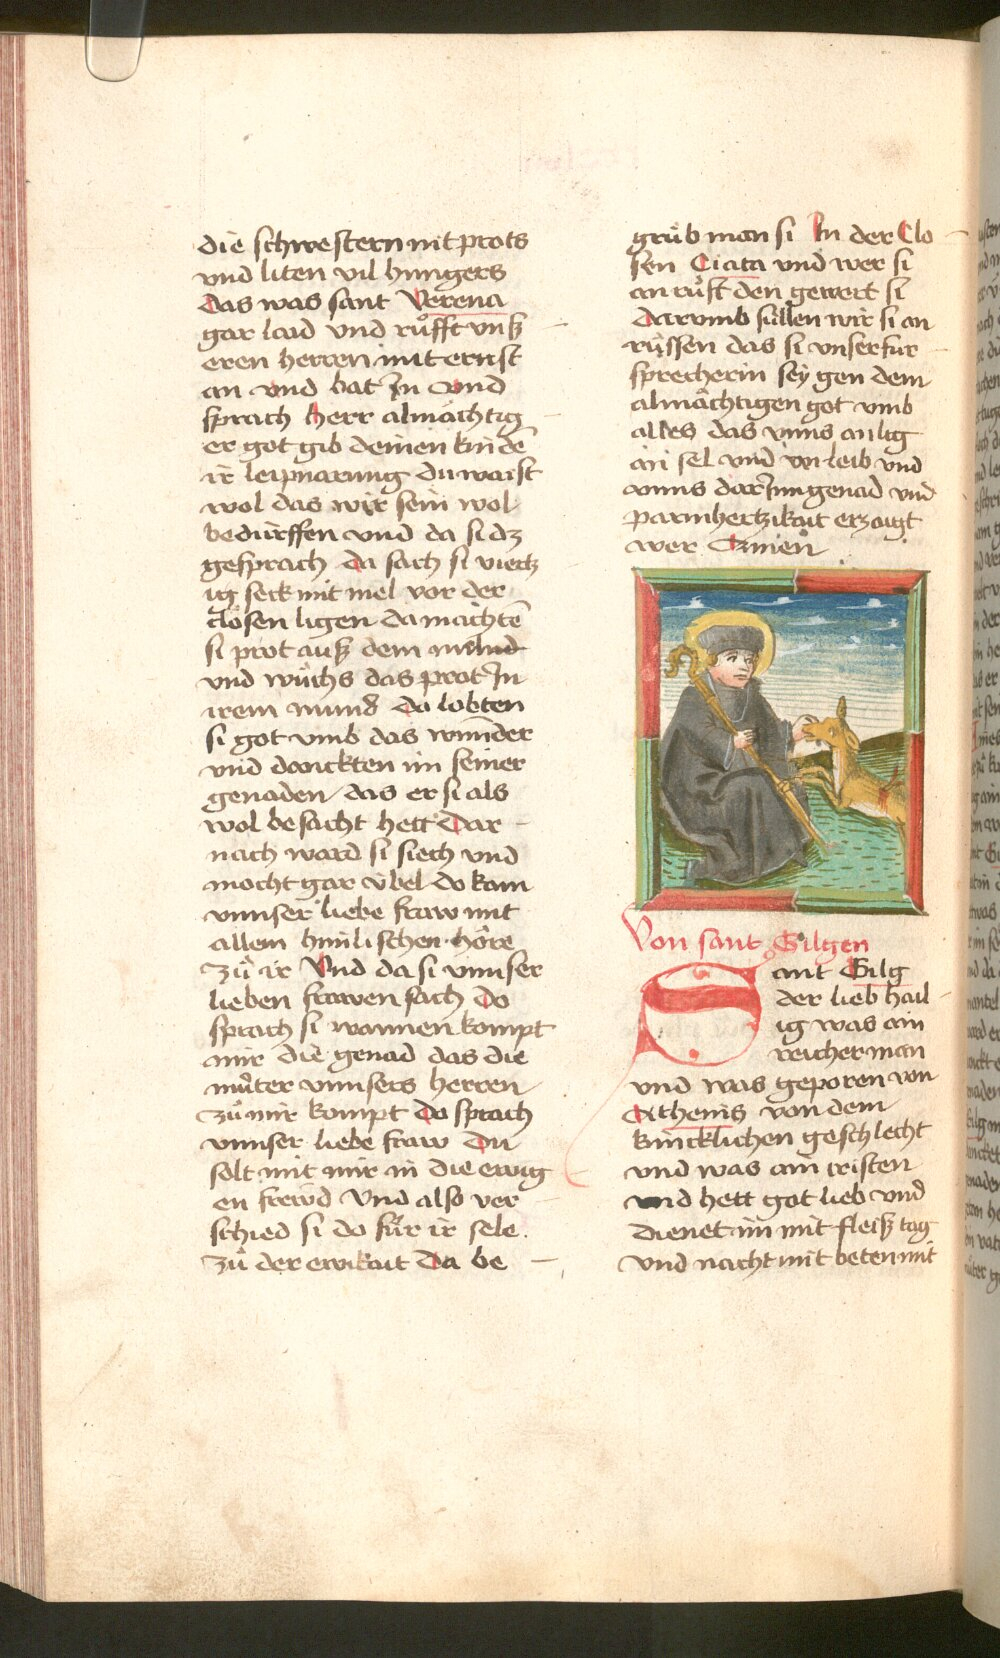 die schwestern nit prots
vnd liten vil hungers
Das was sant Verena
gar laid vnd růfft vnß
eren herren mit ernst
an vnd bat In vnd
sprach herr almächtig
er got gib deinen kindē
ir leipnarung du waist
wol das wir sein wol
bedürffen vnd da si dz
gesprach da sach si viertz
ig seck mit mel vor der
closen ligen da machtē
si prot auß dem
vnd wůchs das prot In
irem mund da lobten
si got vmb das wunder
vnd danckten im seiner
genaden das er si als
wol besacht hett Dar
nach ward si siech vnd
mocht gar übel do kam
vnnser liebe fraw mit
allem himlischen höre
zů ir Vnd da si vnnser
lieben frawen sach Do
sprach si wannen kompt
mir die genad das die
můter vnnsers herren
zů mir kompt da sprach
vnnser liebe fraw Du
solt mit mir in die ewig
en frewd Vnd also ver
schied si do fůr ir sele
zů der ewikait Da be
grůb man si In der Clo
sen Ciata vnd wer si
an růft den gewert si
darumb süllen wir si an
rüffen das si vnser für
sprecherin sey gen dem
almächtigen got vmb
alles das vnns an lig
an sel vnd von leib vnd
vnns dar Inn genad vnd
parmhertzikait erzaigt
wer Amen
Von sant Gilgen
Sant Gilg
der lieb hail
ig was ain
reicher man
vnd was geporen von
Athenis von dem
kincklichen geschlecht
vnd was ain cristen
vnd hett got lieb vnd
dienet im mit fleiß tag
vnd nacht mit beten mit